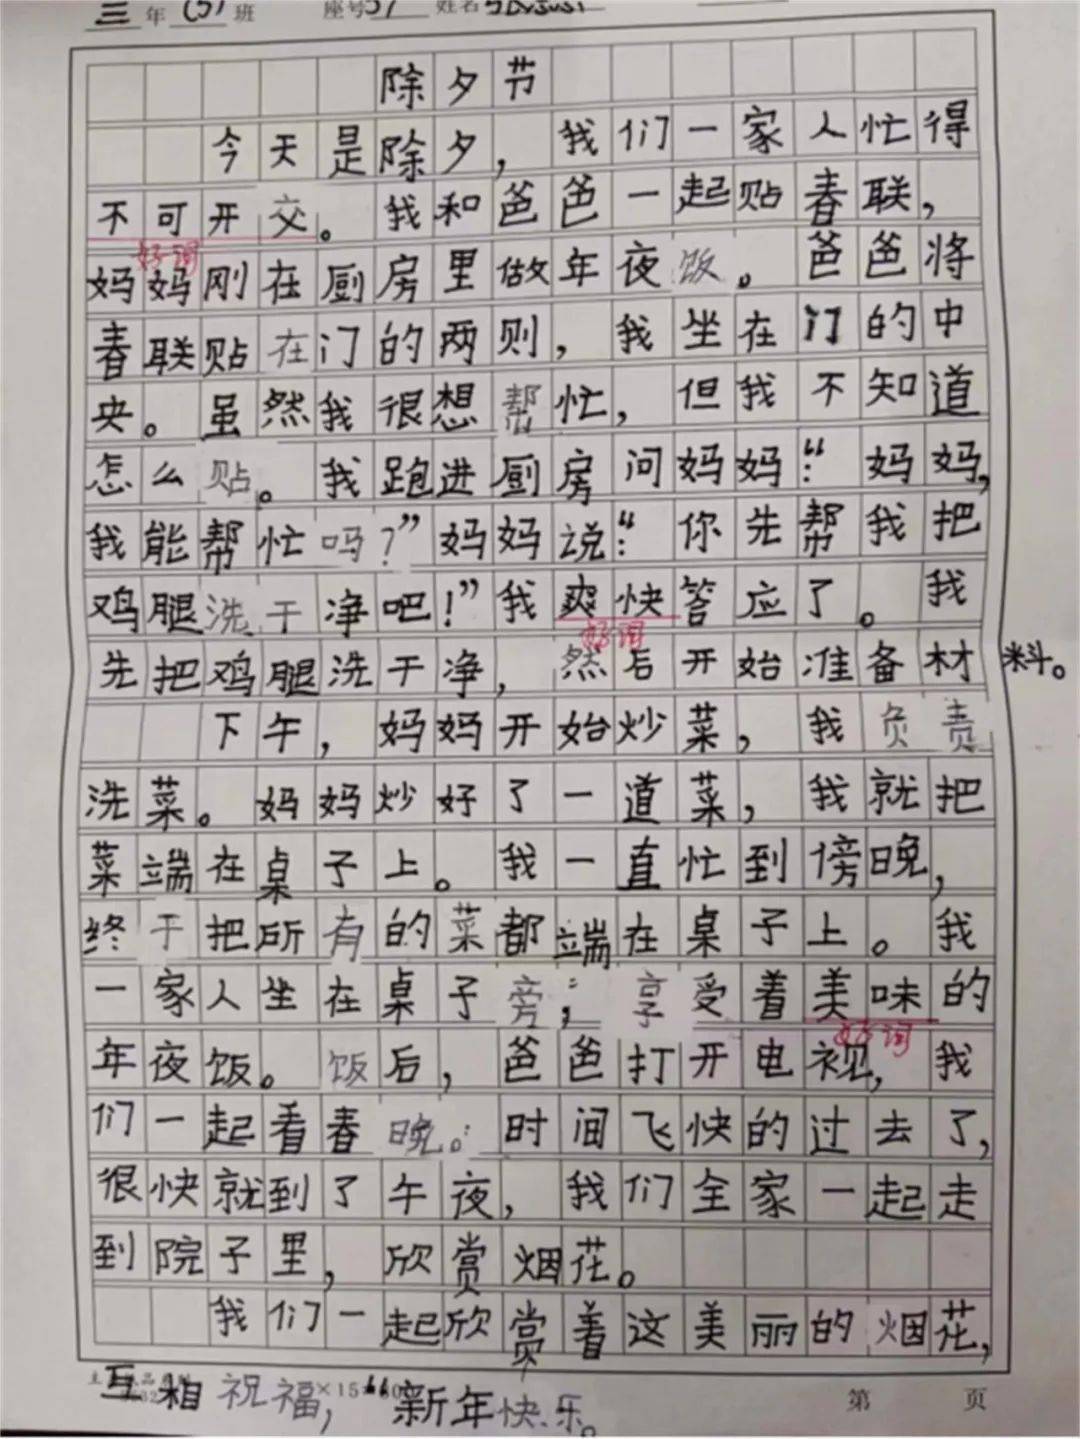 三年(5)班 座号37 姓名
除夕节
今天是除夕，我们一家人忙得
不可开交。我和爸爸一起贴春联，
好词
妈妈刚在厨房里做年夜饭。爸爸将
春联贴在门的两则，我坐在门的中
央。虽然我很想帮忙，但我不知道
怎么贴。我跑进厨房问妈妈：“妈妈，
我能帮忙吗？”妈妈说：“你先帮我把
鸡腿洗干净吧！”我爽快答应了。我
好词
先把鸡腿洗干净，然后开始准备材料。
下午，妈妈开始炒菜，我负责
洗菜。妈妈炒好了一道菜，我就把
菜端在桌子上。我一直忙到傍晚，
终于把所有的菜都端在桌子上。我
一家人坐在桌子旁；享受着美味的
好词
年夜饭。饭后，爸爸打开电视，我
们一起看春晚。时间飞快的过去了，
很快就到了午夜，我们全家一起走
到院子里，欣赏烟花。
我们一起欣赏着这美丽的烟花，
互相祝福，“新年快乐。
第 页